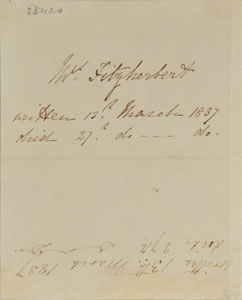 Mrs Fitzherbert
written 13th March 1837
died 27th do — do.
Written 13th March 1837
died, 27th